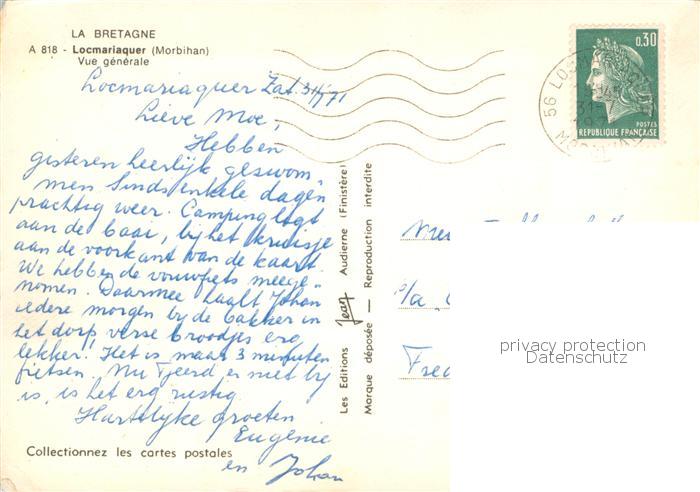 LA BRETAGNE
A 818 - Locmariaquer (Morbihan)
Vue générale
Locmariaquer Zat. 31/7 71
Lieve Moe,
Hebben
gisteren heerlijk gezwom-
men. Sinds enkele dagen
prachtig weer. Camping ligt
aan de baai, bij het kruisje
aan de voorkant van de kaart.
We hebben de vouwfiets meege-
nomen. Daarmee haalt Johan
iedere morgen bij de bakker in
het dorp verse broodjes erg
lekker! Het is maar 3 minuten
fietsen. Nu Tjeerd er niet bij
is, is het erg rustig.
Hartelijke groeten
Eugenie
en Johan
Collectionnez les cartes postales
Les Editions Jean Audierne (Finistère)
Marque déposée — Reproduction interdite
0,30
POSTES
REPUBLIQUE FRANÇAISE
56
31-7
c/a
privacy protection
Datenschutz